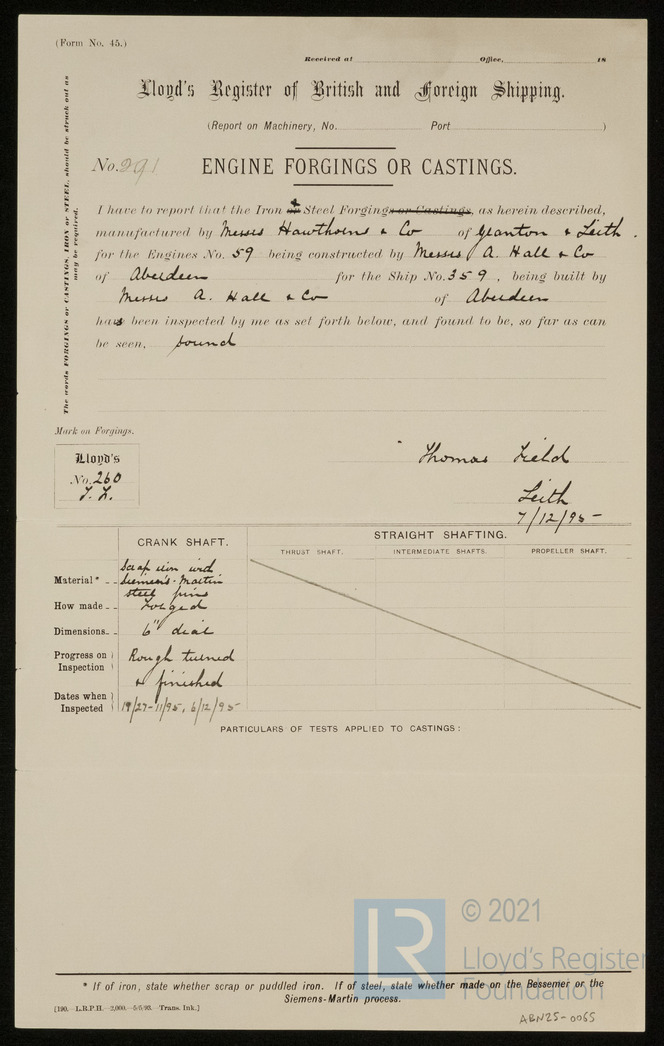 (Form No. 45.)
Received at Office, 18
Lloyd's Register of British and Foreign Shipping.
(Report on Machinery, No. Port )
No. 291 ENGINE FORGINGS OR CASTINGS.
The words FORGINGS or CASTINGS, IRON or STEEL, should be struck out as may be required.
I have to report that the Iron or & Steel Forgings or Castings, as herein described,
manufactured by Messrs Hawthorns & Co of Granton & Leith.
for the Engines No. 59 being constructed by Messrs A. Hall & Co
of Aberdeen for the Ship No. 359, being built by
Messrs A. Hall & Co of Aberdeen
has been inspected by me as set forth below, and found to be, so far as can
be seen, sound
Mark on Forgings.
Lloyd's
No. 260
T. F.
Thomas Field
Leith
7/12/95
CRANK SHAFT. STRAIGHT SHAFTING.
THRUST SHAFT. INTERMEDIATE SHAFTS. PROPELLER SHAFT.
Material* Scrap iron with
Siemens-Martin
steel pins
How made Forged
Dimensions 6" diar
Progress on Inspection Rough turned
& finished
Dates when Inspected 19/27-11/95, 6/12/95
PARTICULARS OF TESTS APPLIED TO CASTINGS:
© 2021
LR Lloyd's Register
Foundation
* If of iron, state whether scrap or puddled iron. If of steel, state whether made on the Bessemer or the
Siemens-Martin process.
[190.—L.R.P.H.—2,000.—5/5/93. Trans. Ink.]
ABN25-0065